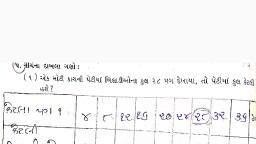 ૫. નીચેના દાખલા ગણો:
(૧) એક મોટી કાચની પેટીમાં ખિસકોલીઓના કુલ ૨૮ પગ દેખાયા, તો પેટીમાં કુલ કેટલી
હશે?
કેટલા પગ ? ૪ ૮ ૧૨ ૧૬ ૨૦ ૨૪ ૨૮ ૩૨ ૩૬
કેટલી